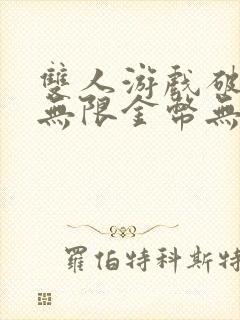 雙人游戲破
無限金幣無
羅伯特科斯特